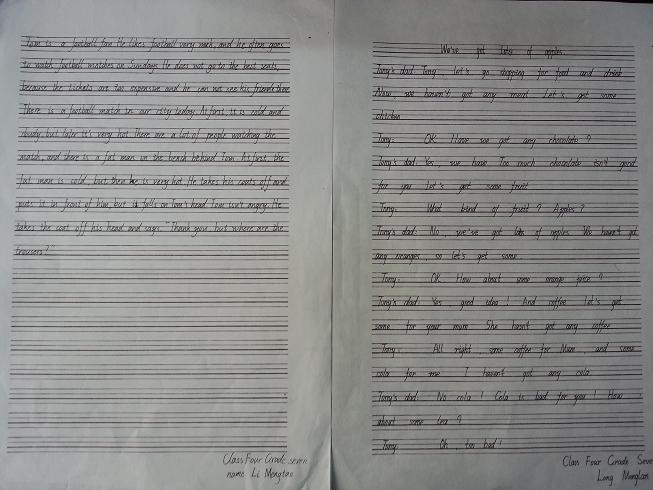 Tom is a football fan. He likes football very much, and he often goes
to watch football matches on Sundays. He does not go to the best seats,
because the tickets are too expensive and he can not see his friends there.
There is a football match in our city today. At first, it is cold and
cloudy, but later it's very hot. There are a lot of people watching the
match, and there is a fat man on the bench behind Tom. At first, the
fat man is cold, but then he is very hot. He takes his coats off and
puts it in front of him, but it falls on Tom's head. Tom isn't angry. He
takes the coat off his head and says: "Thank you but where are the
trousers?"
Class Four Grade seven
name Li Mengtao
We've got lots of apples.
Tony's dad: Tony, let's go shopping for food and drink.
Now, we haven't got any meat. Let's get some
chicken.
Tony: OK. Have we got any chocolate?
Tony's dad: Yes, we have. Too much chocolate isn't good
for you. Let's get some fruit.
Tony: What kind of fruit? Apples?
Tony's dad: No, we've got lots of apples. We haven't got
any oranges, so let's get some.
Tony: OK. How about some orange juice?
Tony's dad: Yes, good idea! And coffee. Let's get
some for your mum. She hasn't got any coffee.
Tony: All right, some coffee for Mum, and some
cola for me. I haven't got any cola.
Tony's dad: No cola! Cola is bad for you! How
about some tea?
Tony: Oh, too bad!
Class Four Grade Seve
Long